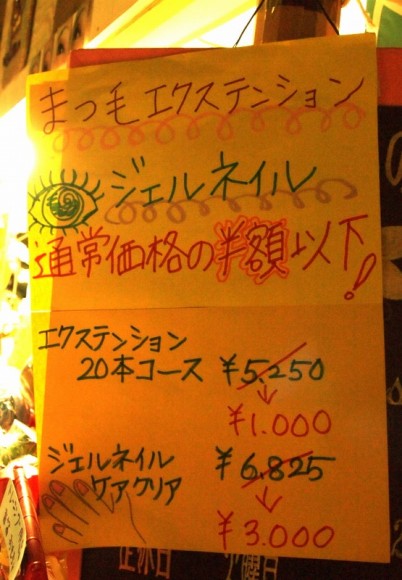 まつ毛エクステンション
ジェルネイル
通常価格の半額以下!
エクステンション
20本コース ¥5.250
↓
¥1.000
ジェルネイル
ケアクリア ¥6.825
↓
¥3.000
定休日